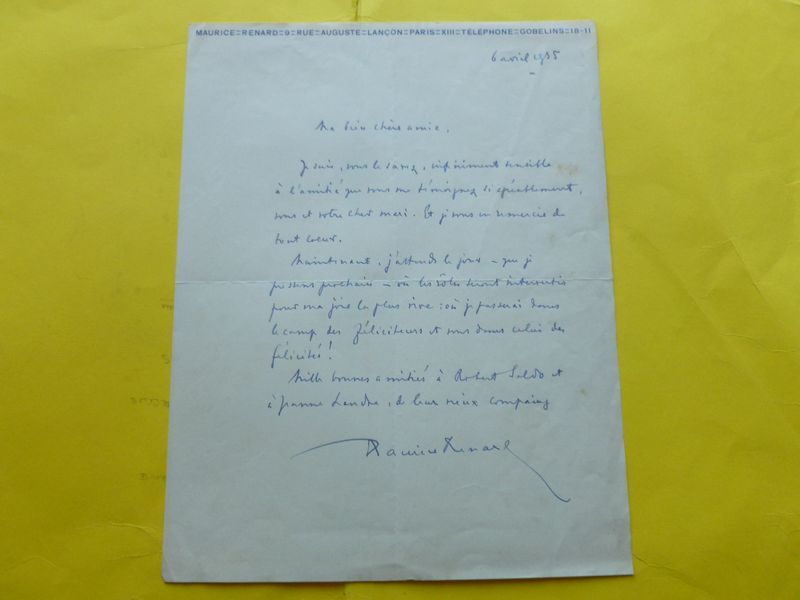 MAURICE=RENARD=9=RUE=AUGUSTE=LANÇON=PARIS=XIII=TÉLÉPHONE=GOBELINS=18-11
6 avril 1935
Ma bien chère amie,
Je suis, vous le savez, infiniment sensible
à l'amitié que vous me témoignez si agréablement,
vous et votre cher mari. Et je vous en remercie de
tout coeur.
Maintenant, j'attends le jour – que je
pressens prochain – où les rôles seront intervertis
pour ma joie la plus vive : où je passerai dans
le camp des féliciteurs et vous dans celui des
félicités!
Mille bonnes amitiés à Robert et
à Jeanne Landre, de leur vieux compaing
Maurice Renard